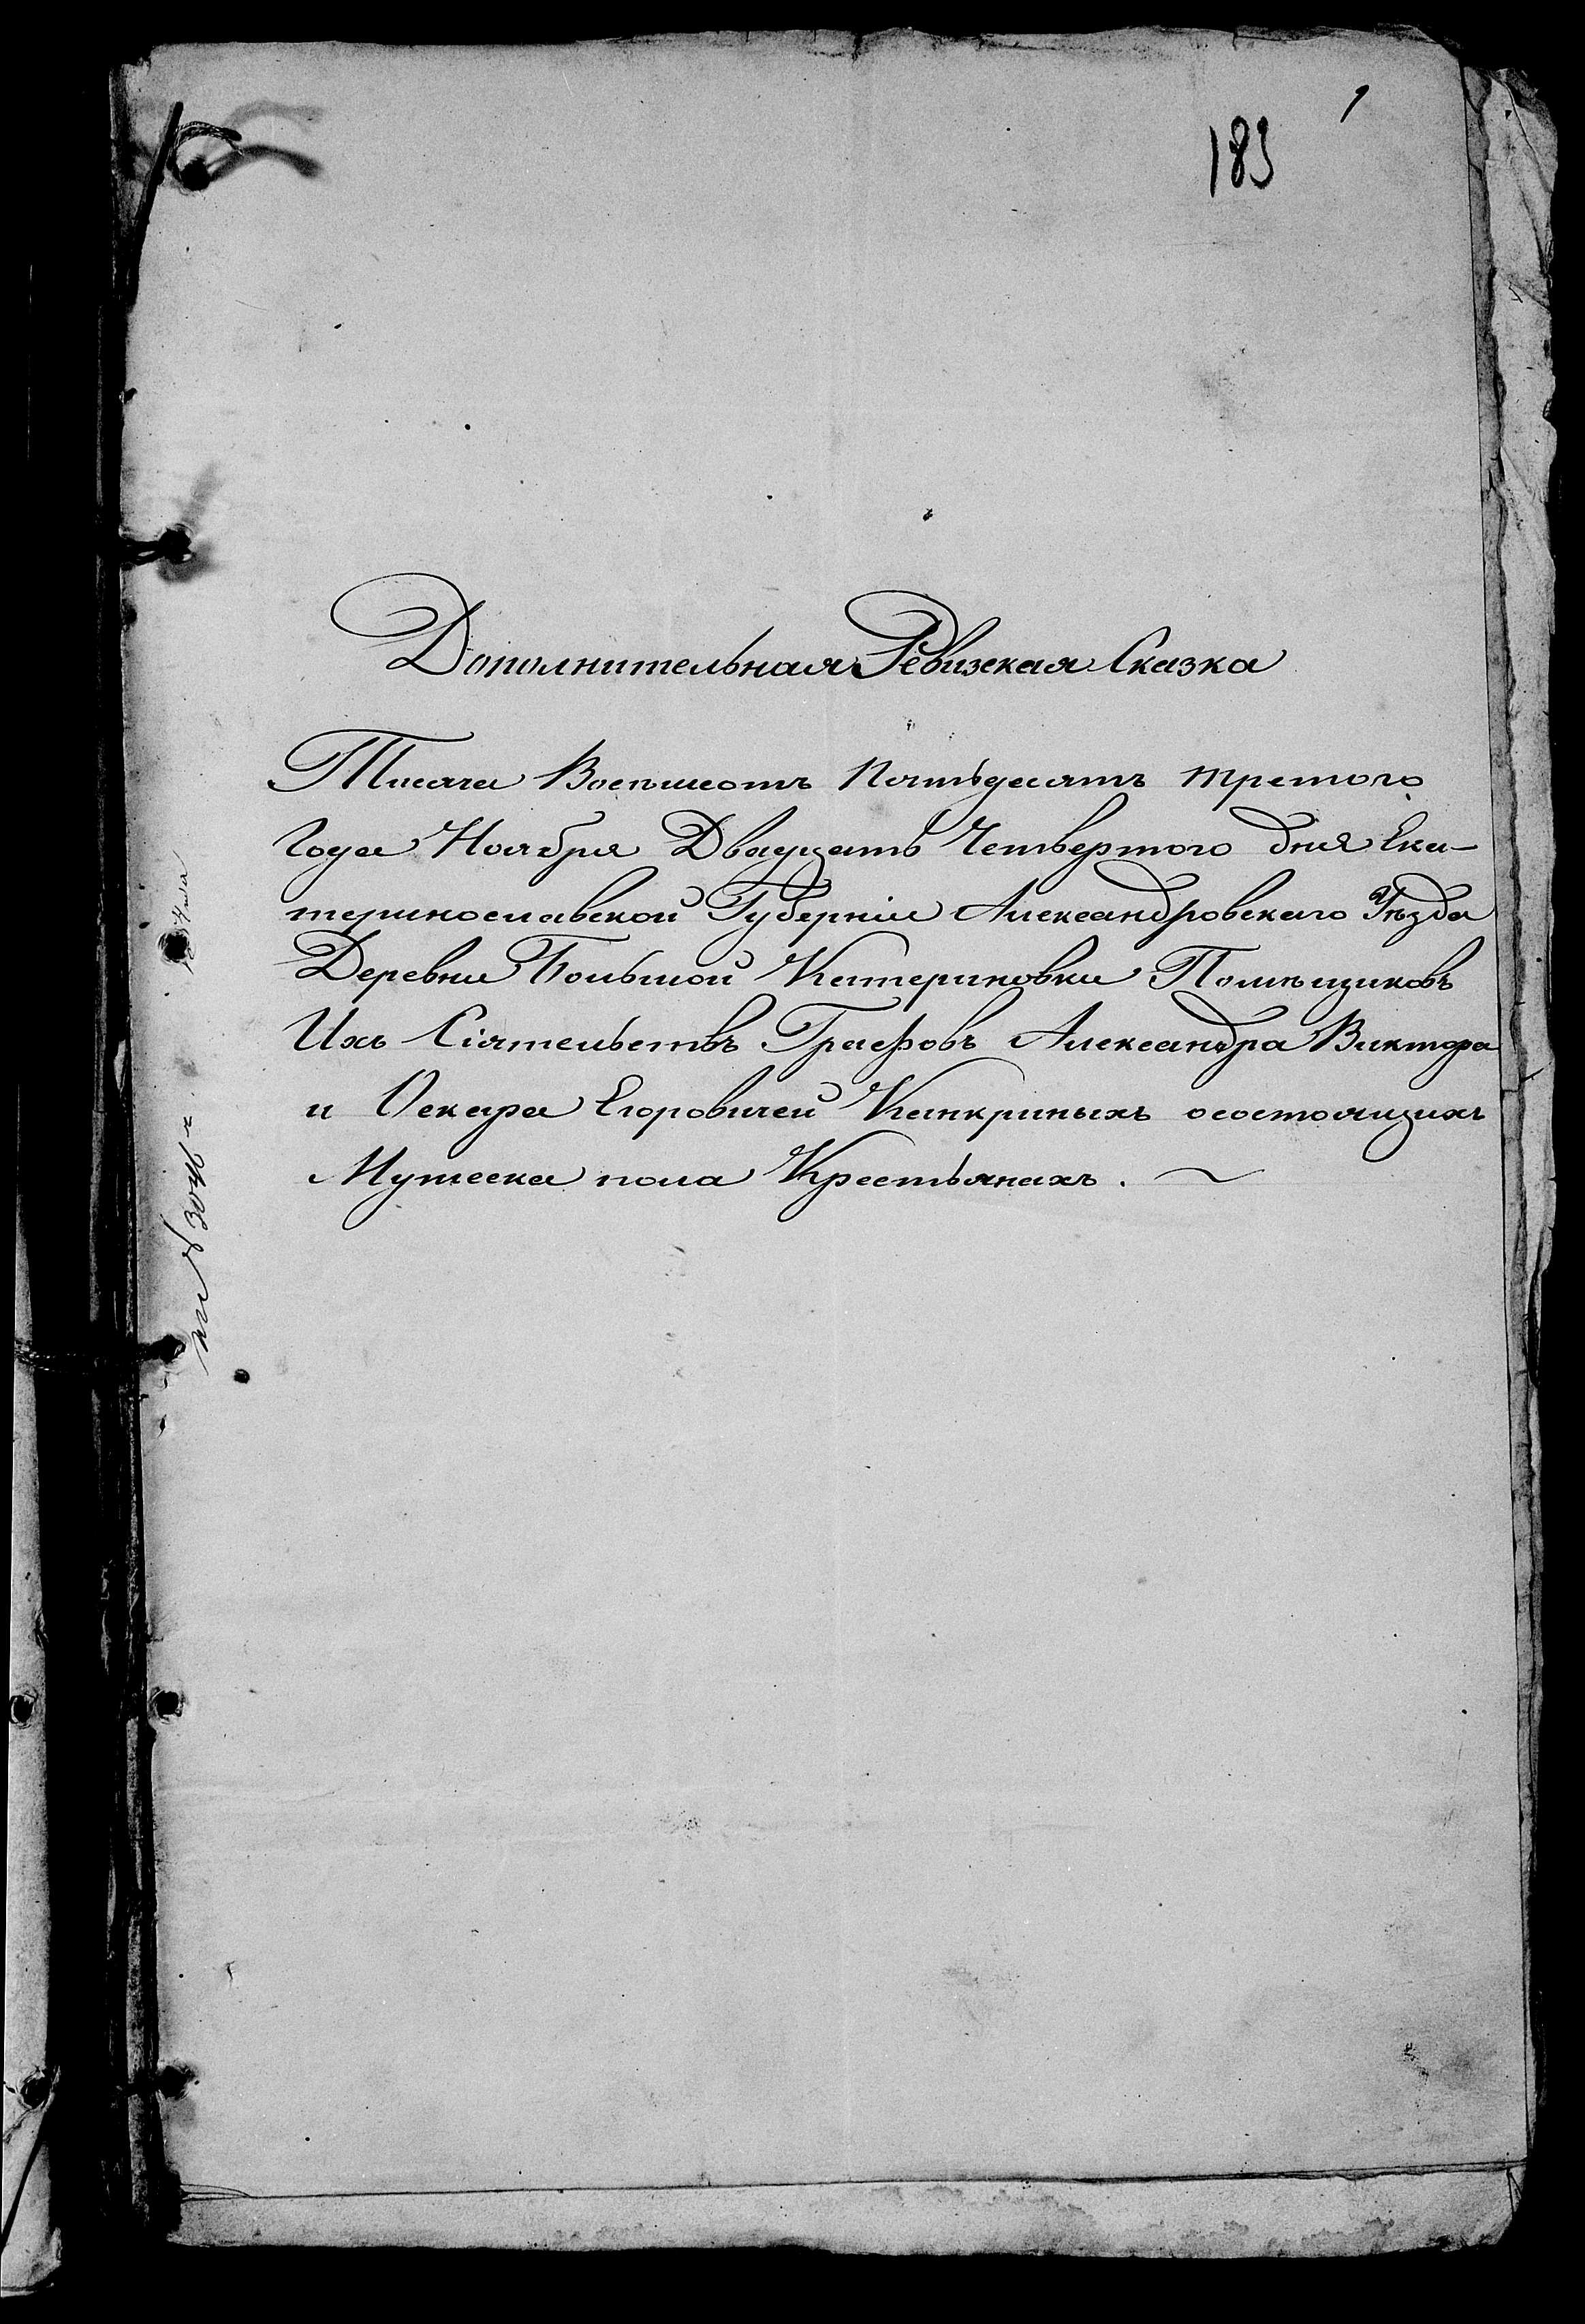 1
183
Дополнительная Ревизская Сказка
Тисяча Восемьсотъ Пятьдесятъ третого
Года Ноября Двадцать Четвертого дня Ека-
теринославской Губерніи Александровскаго Уѣзда
Деревни Большой Катериновки Помѣщиковъ
Ихъ Сіятельствъ Графовъ Александра Виктора
и Оскара Егоровичей Канкриныхъ осостоящихъ
Мужеска пола Крестьянахъ. ~